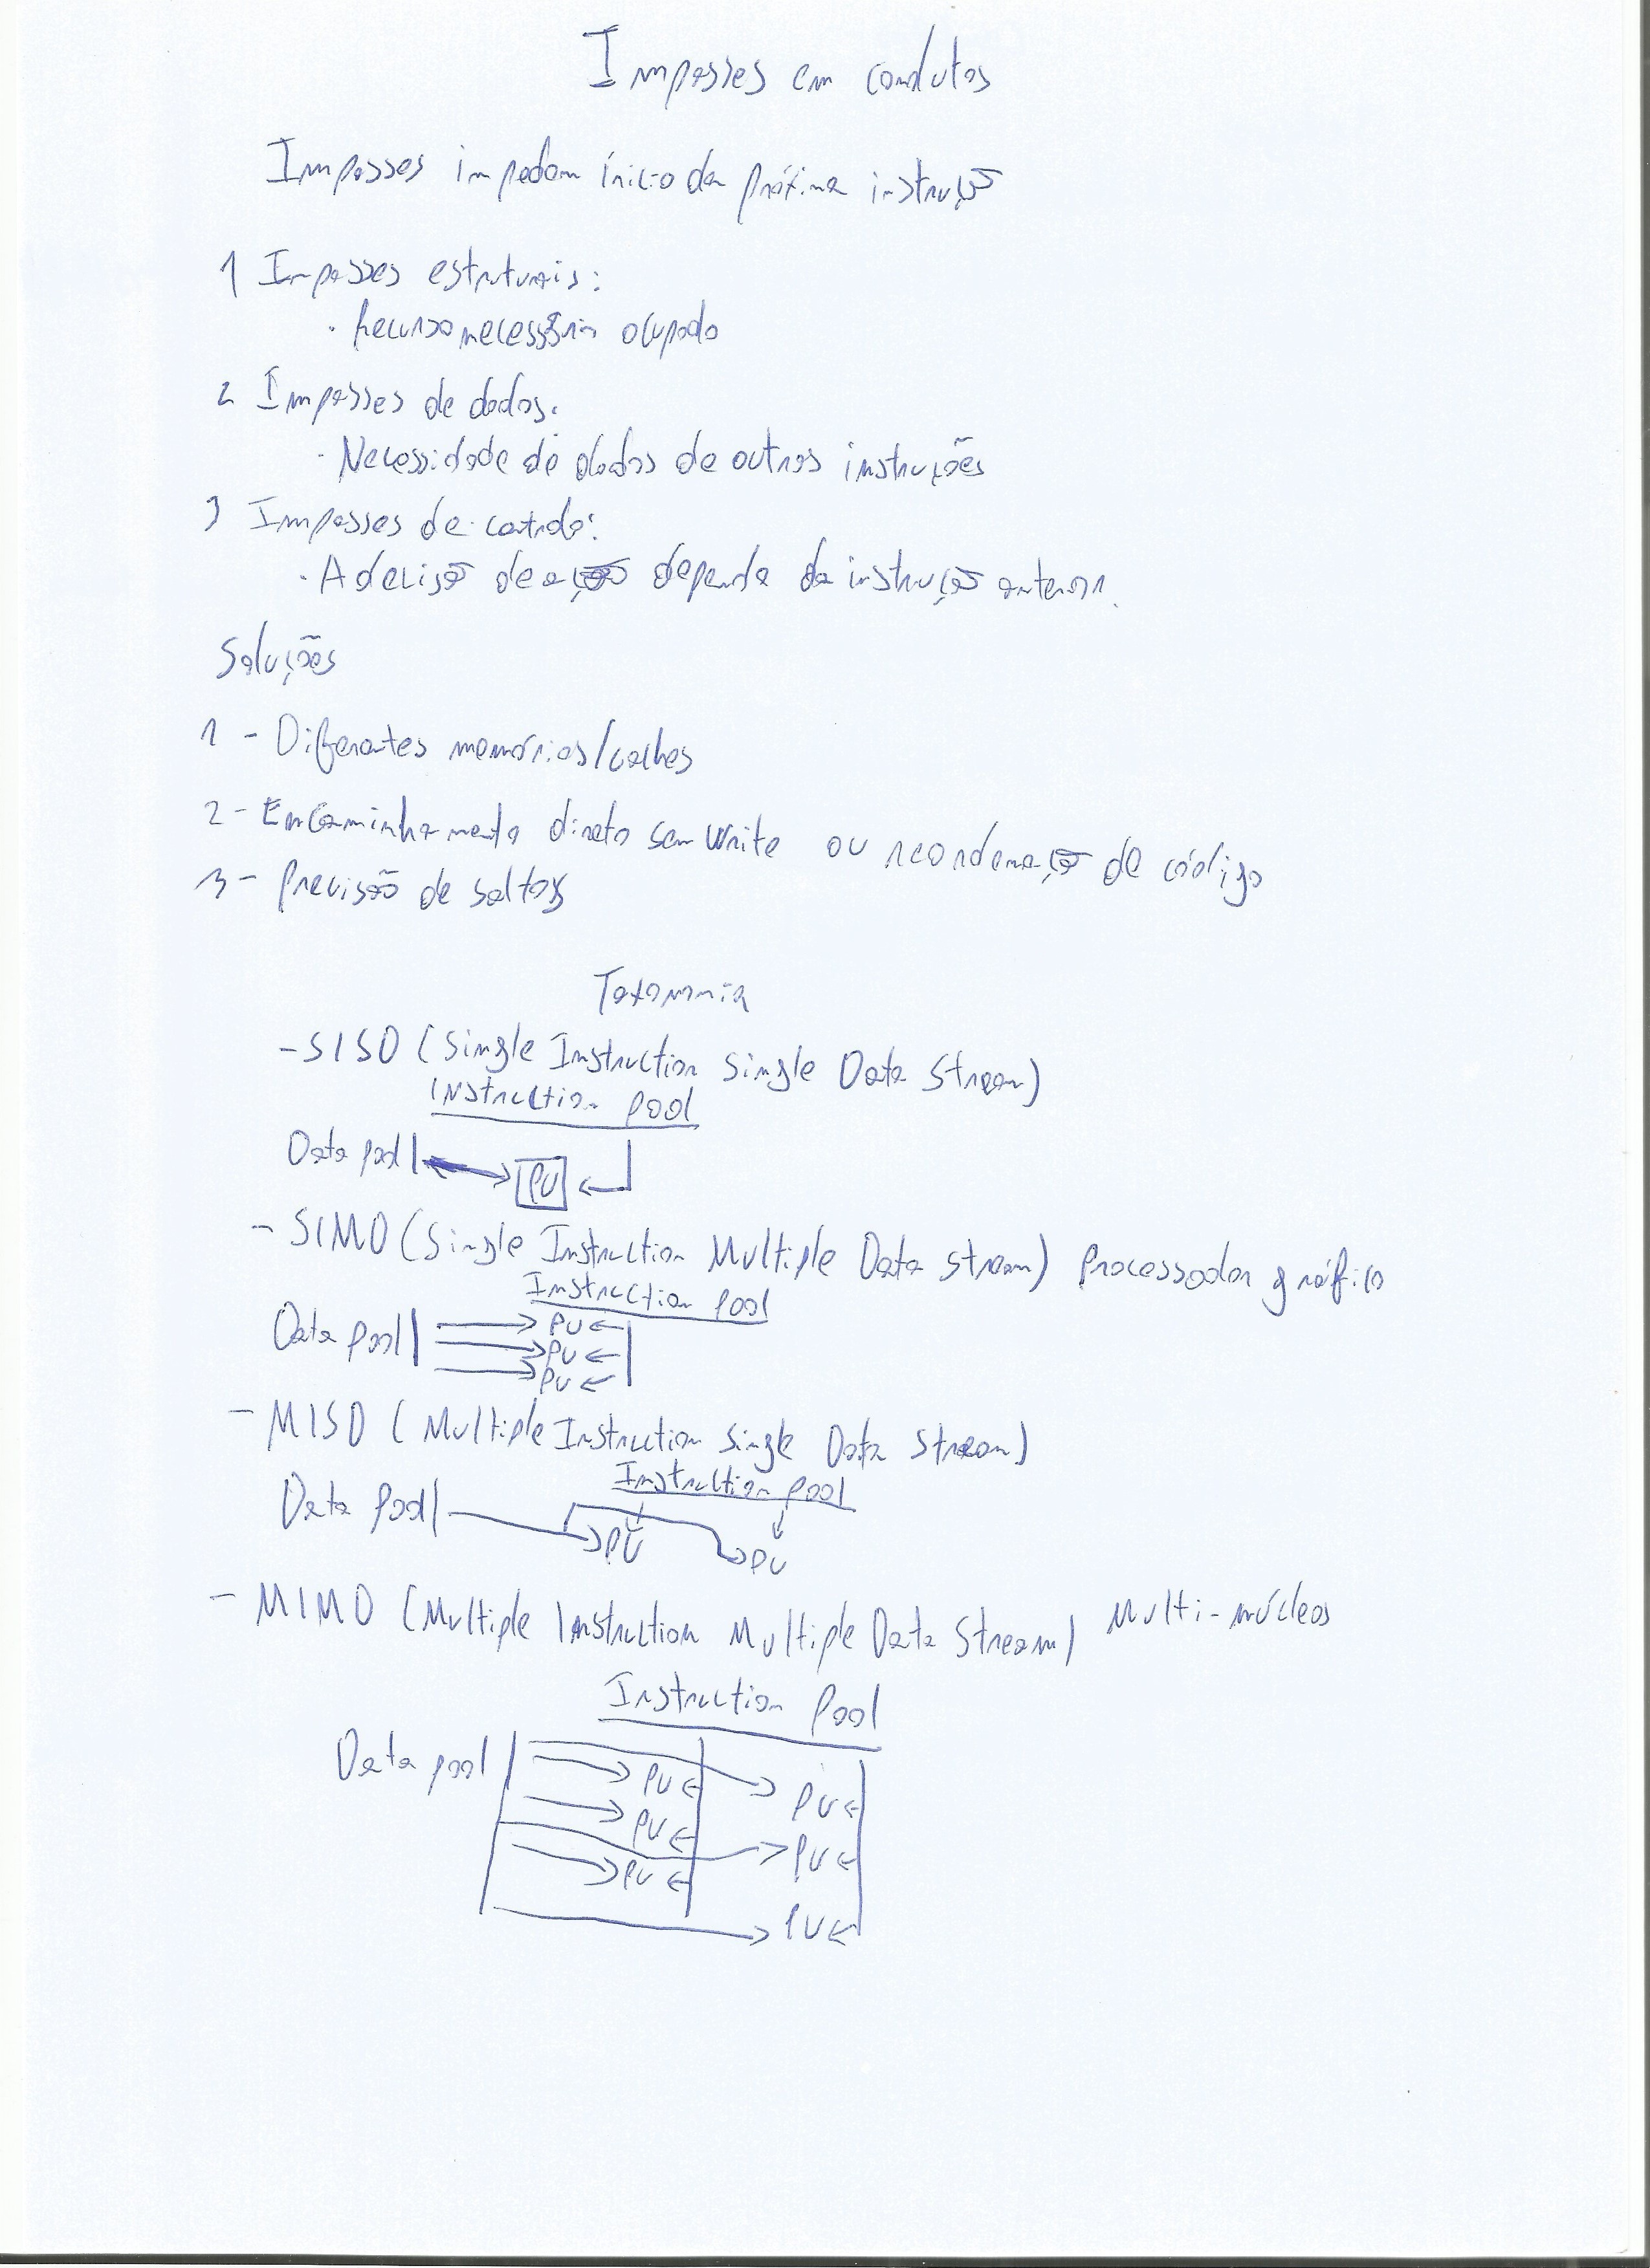 Impasses em condutas
Impasses impedem ínicio da próxima instrução
1 Impasses estruturais:
· Recurso necessário ocupado
2 Impasses de dados:
· Necessidade de dados de outras instruções
3 Impasses de controlo:
· A decisão de ação depende da instrução anterior.
Soluções
1 - Diferentes memórias/caches
2 - Encaminhamento direto sem write ou reordenação de código
3 - Previsão de saltos
Taxonomia
- SISD (Single Instruction Single Data Stream)
Instruction pool
Data pool PU
- SIMD (Single Instruction Multiple Data Stream) Processador gráfico
Instruction pool
Data pool PU
PU
PU
- MISD (Multiple Instruction Single Data Stream)
Instruction pool
Data Pool PU PU
- MIMD (Multiple Instruction Multiple Data Stream) Multi-núcleos
Instruction Pool
Data pool PU PU
PU PU
PU PU